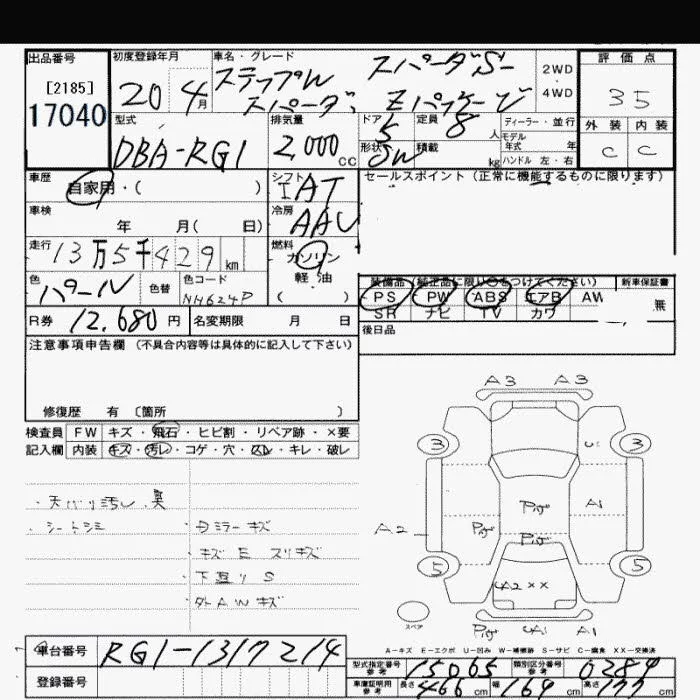 出品番号
[2185]
17040
初度登録年月
20 4月
車名・グレード
ステップW スパーダS-
スパーダ Zパッケージ
2WD
4WD
評価点
35
外装 内装
C C
型式
DBA-RG1
排気量
2,000 cc
ドア 5
形状 SW
定員 8 人
積載 kg
ディーラー・並行
モデル年式 年
ハンドル 左・右
車歴
自家用・( )
シフト
IAT
セールスポイント (正常に機能するものに限ります)
車検
年 月( 日)
冷房
AAC
走行
13万5千429km
燃料
ガソリン
軽油
( )
色
パール
色替
色コード
NH624P
装備品 (純正品に限り○をつけてください)
新車保証書
PS PW ABS エアB AW
SR ナビ TV カワ
無
R券 12,680円
名変期限 月 日
後日品
注意事項申告欄 (不具合内容等は具体的に記入して下さい)
修復歴 有 〔箇所 〕
検査員 FW キズ・飛石・ヒビ割・リペア跡・×要
記入欄 内装 キズ・汚レ・コゲ・穴・スレ・キレ・破レ
・天バリ汚レ 臭
・シートシミ
・日ミラーキズ
キズ E スリキズ
下廻り S
外AWキズ
A3 A3
3 3
U
A1
A2
5 5
A2 ××
スペア
A1
A-キズ E-エクボ U-凹み W-補修跡 S-サビ C-腐食 XX-交換済
車台番号 RG1-1317214
登録番号
型式指定番号 参考 15065
類別区分番号 参考 0284
車庫証明用 参考 長さ 466cm 幅 169cm 高さ 177cm